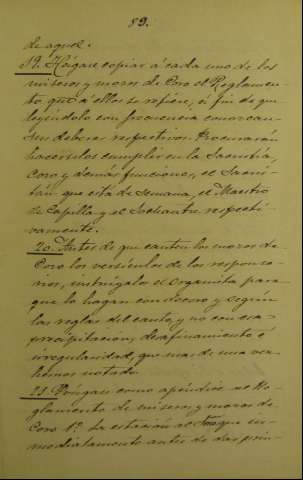 89.
de aquel.
19. Hágase copiar á cada uno de los
miseros y mozos de Coro el Reglamen-
to que á ellos se refiere, á fin de que
leyéndolo con frecuencia conozcan
sus deberes respectivos. Procurarán
hacérselos cumplir en la Sacristía,
Coro y demás funciones, el Sacris-
tán que está de semana, el Maestro
de Capilla y el Sochantre respecti-
vamente.
20. Antes de que canten los mozos de
Coro los versículos de los responso-
rios, instrúyalos el Organista para
que lo hagan con decoro y según
las reglas del canto y no con esa
precipitacion, desafinamiento é
irregularidad, que mas de una vez
hemos notado.
21. Póngase como apéndice al Re-
glamento de miseros y mozos de
Coro 1º. La estación al toque in-
mediatamente antes de dar prin-